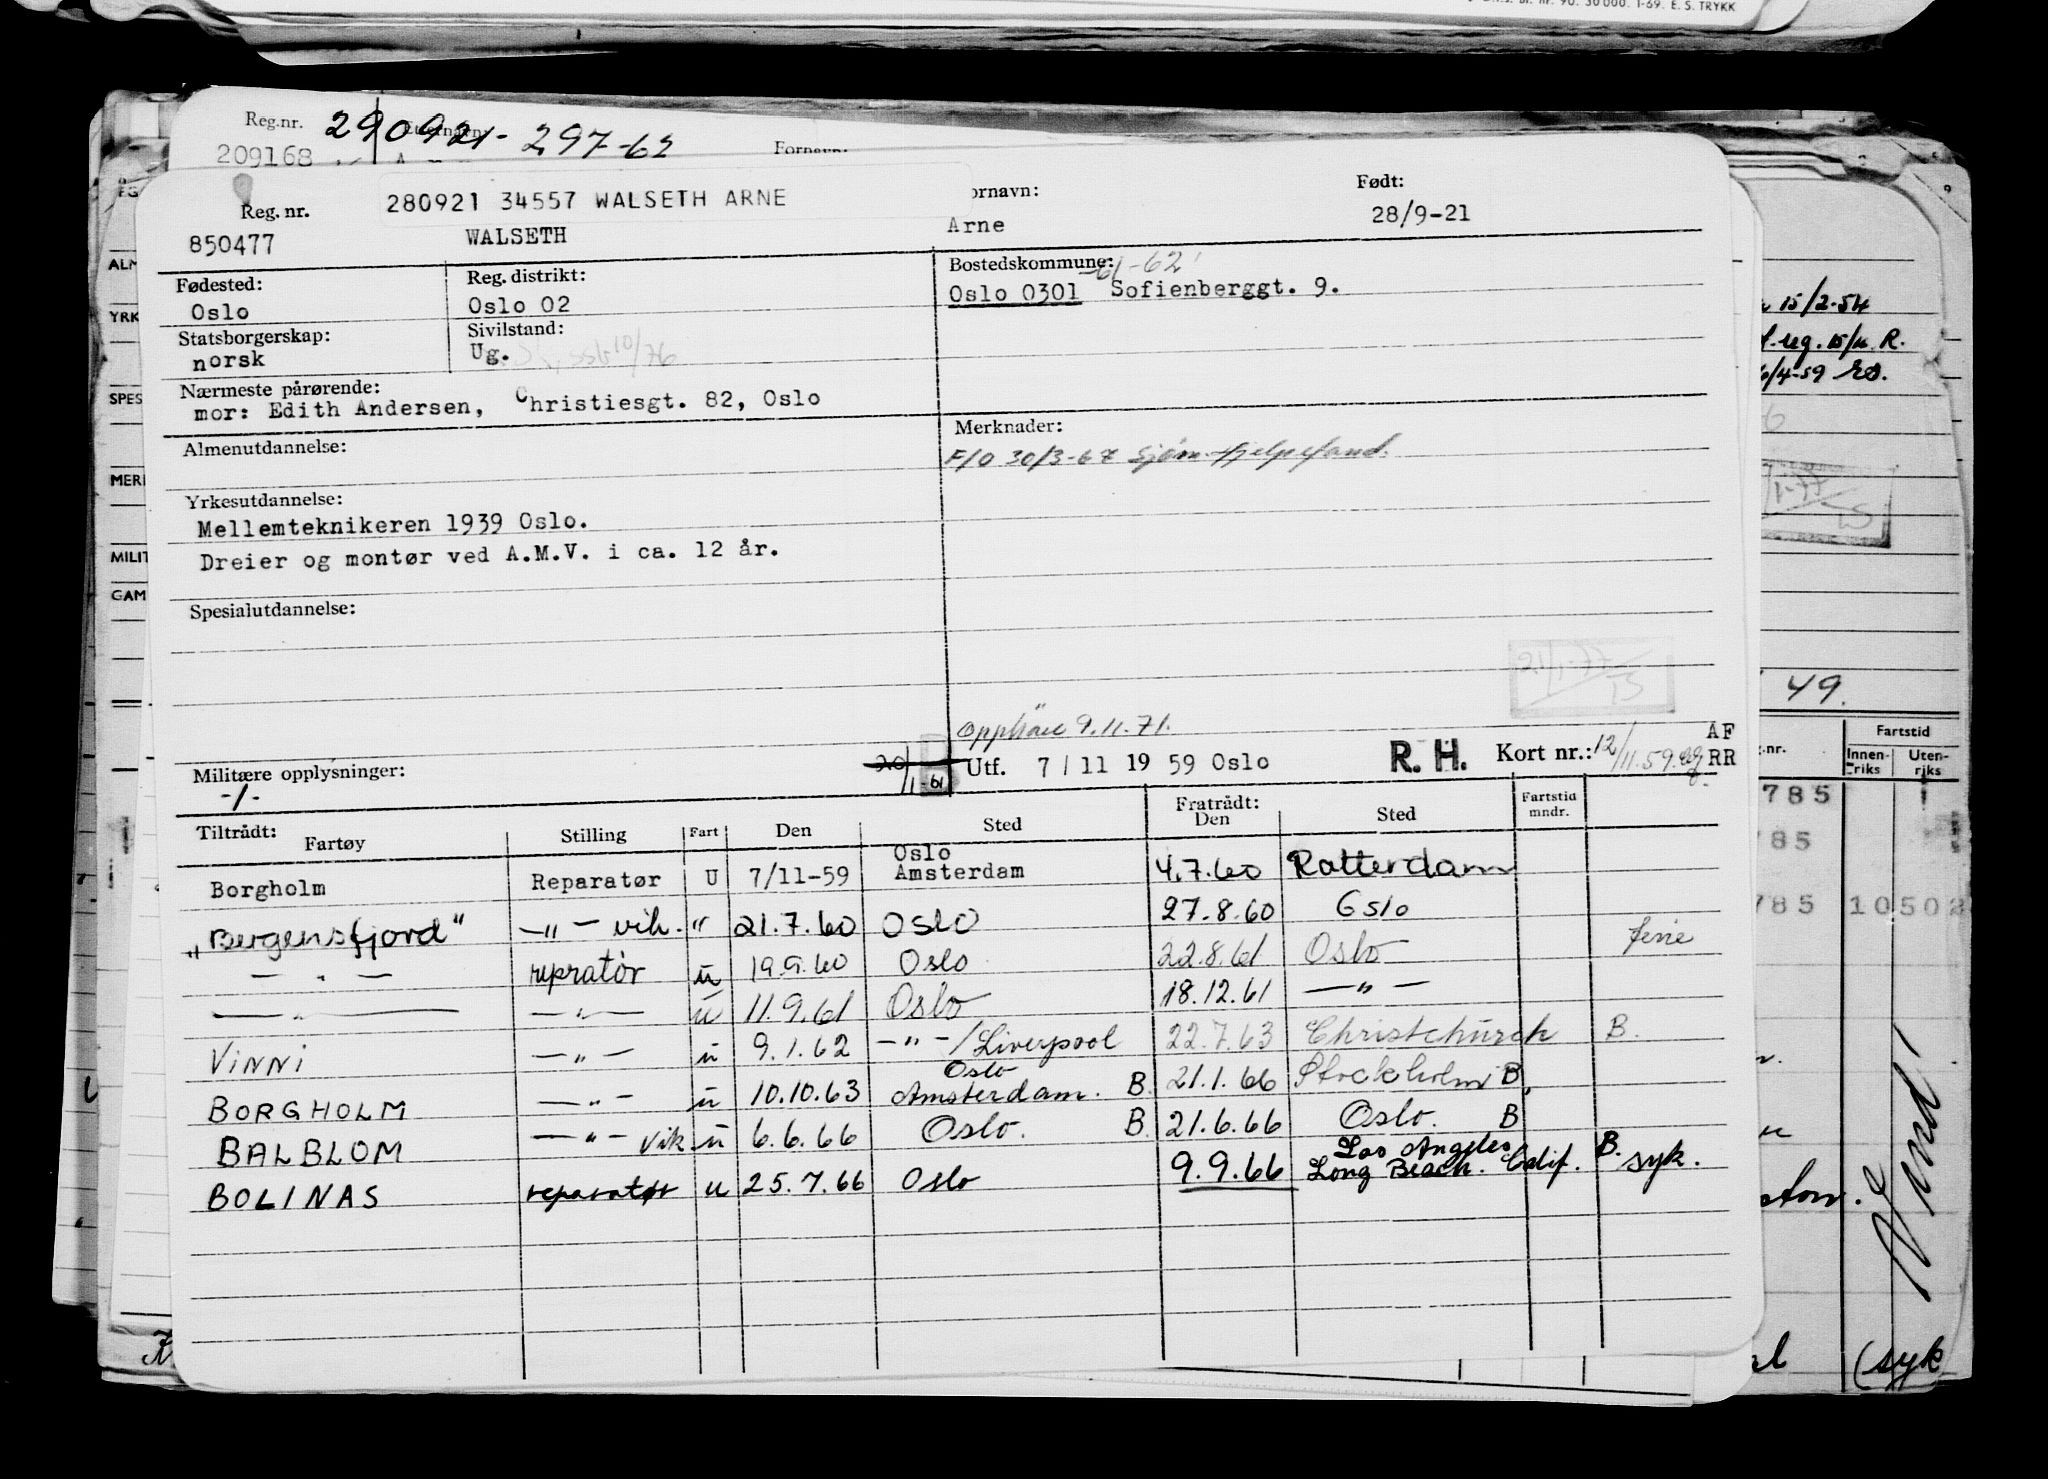 Bl. nr. 90. 30 000. 1-69. E. S. TRYKK
Reg.nr. 290921-297-62
209168 Fornavn:
280921 34557 WALSETH ARNE
Reg. nr. ornavn: Født:
850477 WALSETH Arne 28/9-21
Fødested: Reg. distrikt: Bostedskommune: 61-62
Oslo Oslo 02 Oslo 0301 Sofienberggt. 9.
Statsborgerskap: Sivilstand:
norsk Ug. 10/76
Nærmeste pårørende:
mor: Edith Andersen, Christiesgt. 82, Oslo
Almenutdannelse: Merknader:
F/O 30/3-67 Sjøm. hjelpefond.
Yrkesutdannelse:
Mellemteknikeren 1939 Oslo.
Dreier og montør ved A.M.V. i ca. 12 år.
Spesialutdannelse:
21/1-77
TS
Opphäve 9.11.71.
Militære opplysninger: Utf. 7/11 19 59 Oslo R. H. Kort nr.: 12/11.59. AF RR
-/-
Tiltrådt: Fratrådt:
Fartøy Stilling Fart Den Sted Den Sted Fartstid mndr.
Borgholm Reparatør U 7/11-59 Oslo Amsterdam 4.7.60 Rotterdam
"Bergensfjord" -"- vik. " 21.7.60 Oslo 27.8.60 Oslo
- " - repratør u 19.9.60 Oslo 22.8.61 Oslo ferie
- " - - " - u 11.9.61 Oslo 18.12.61 - " -
VINNI - " - u 9.1.62 - " - /Liverpool 22.7.63 Christchurch B.
BORGHOLM - " - u 10.10.63 Oslo Amsterdam. B. 21.1.66 Stockholm B.
BALBLOM - " - vik u 6.6.66 Oslo. B. 21.6.66 Oslo. B
BOLINAS reparatør u 25.7.66 Oslo 9.9.66 Los Angeles Long Beach. Calif. B. syk.
ALM
YRK
SPES
MER
MILIT
GAM
15/2-54
reg. 15/11 R.
6/4-59
1-77
TS
49.
nr. Fartstid
Innen-riks Uten-riks
785
85
785 10502
Vind!
(syk